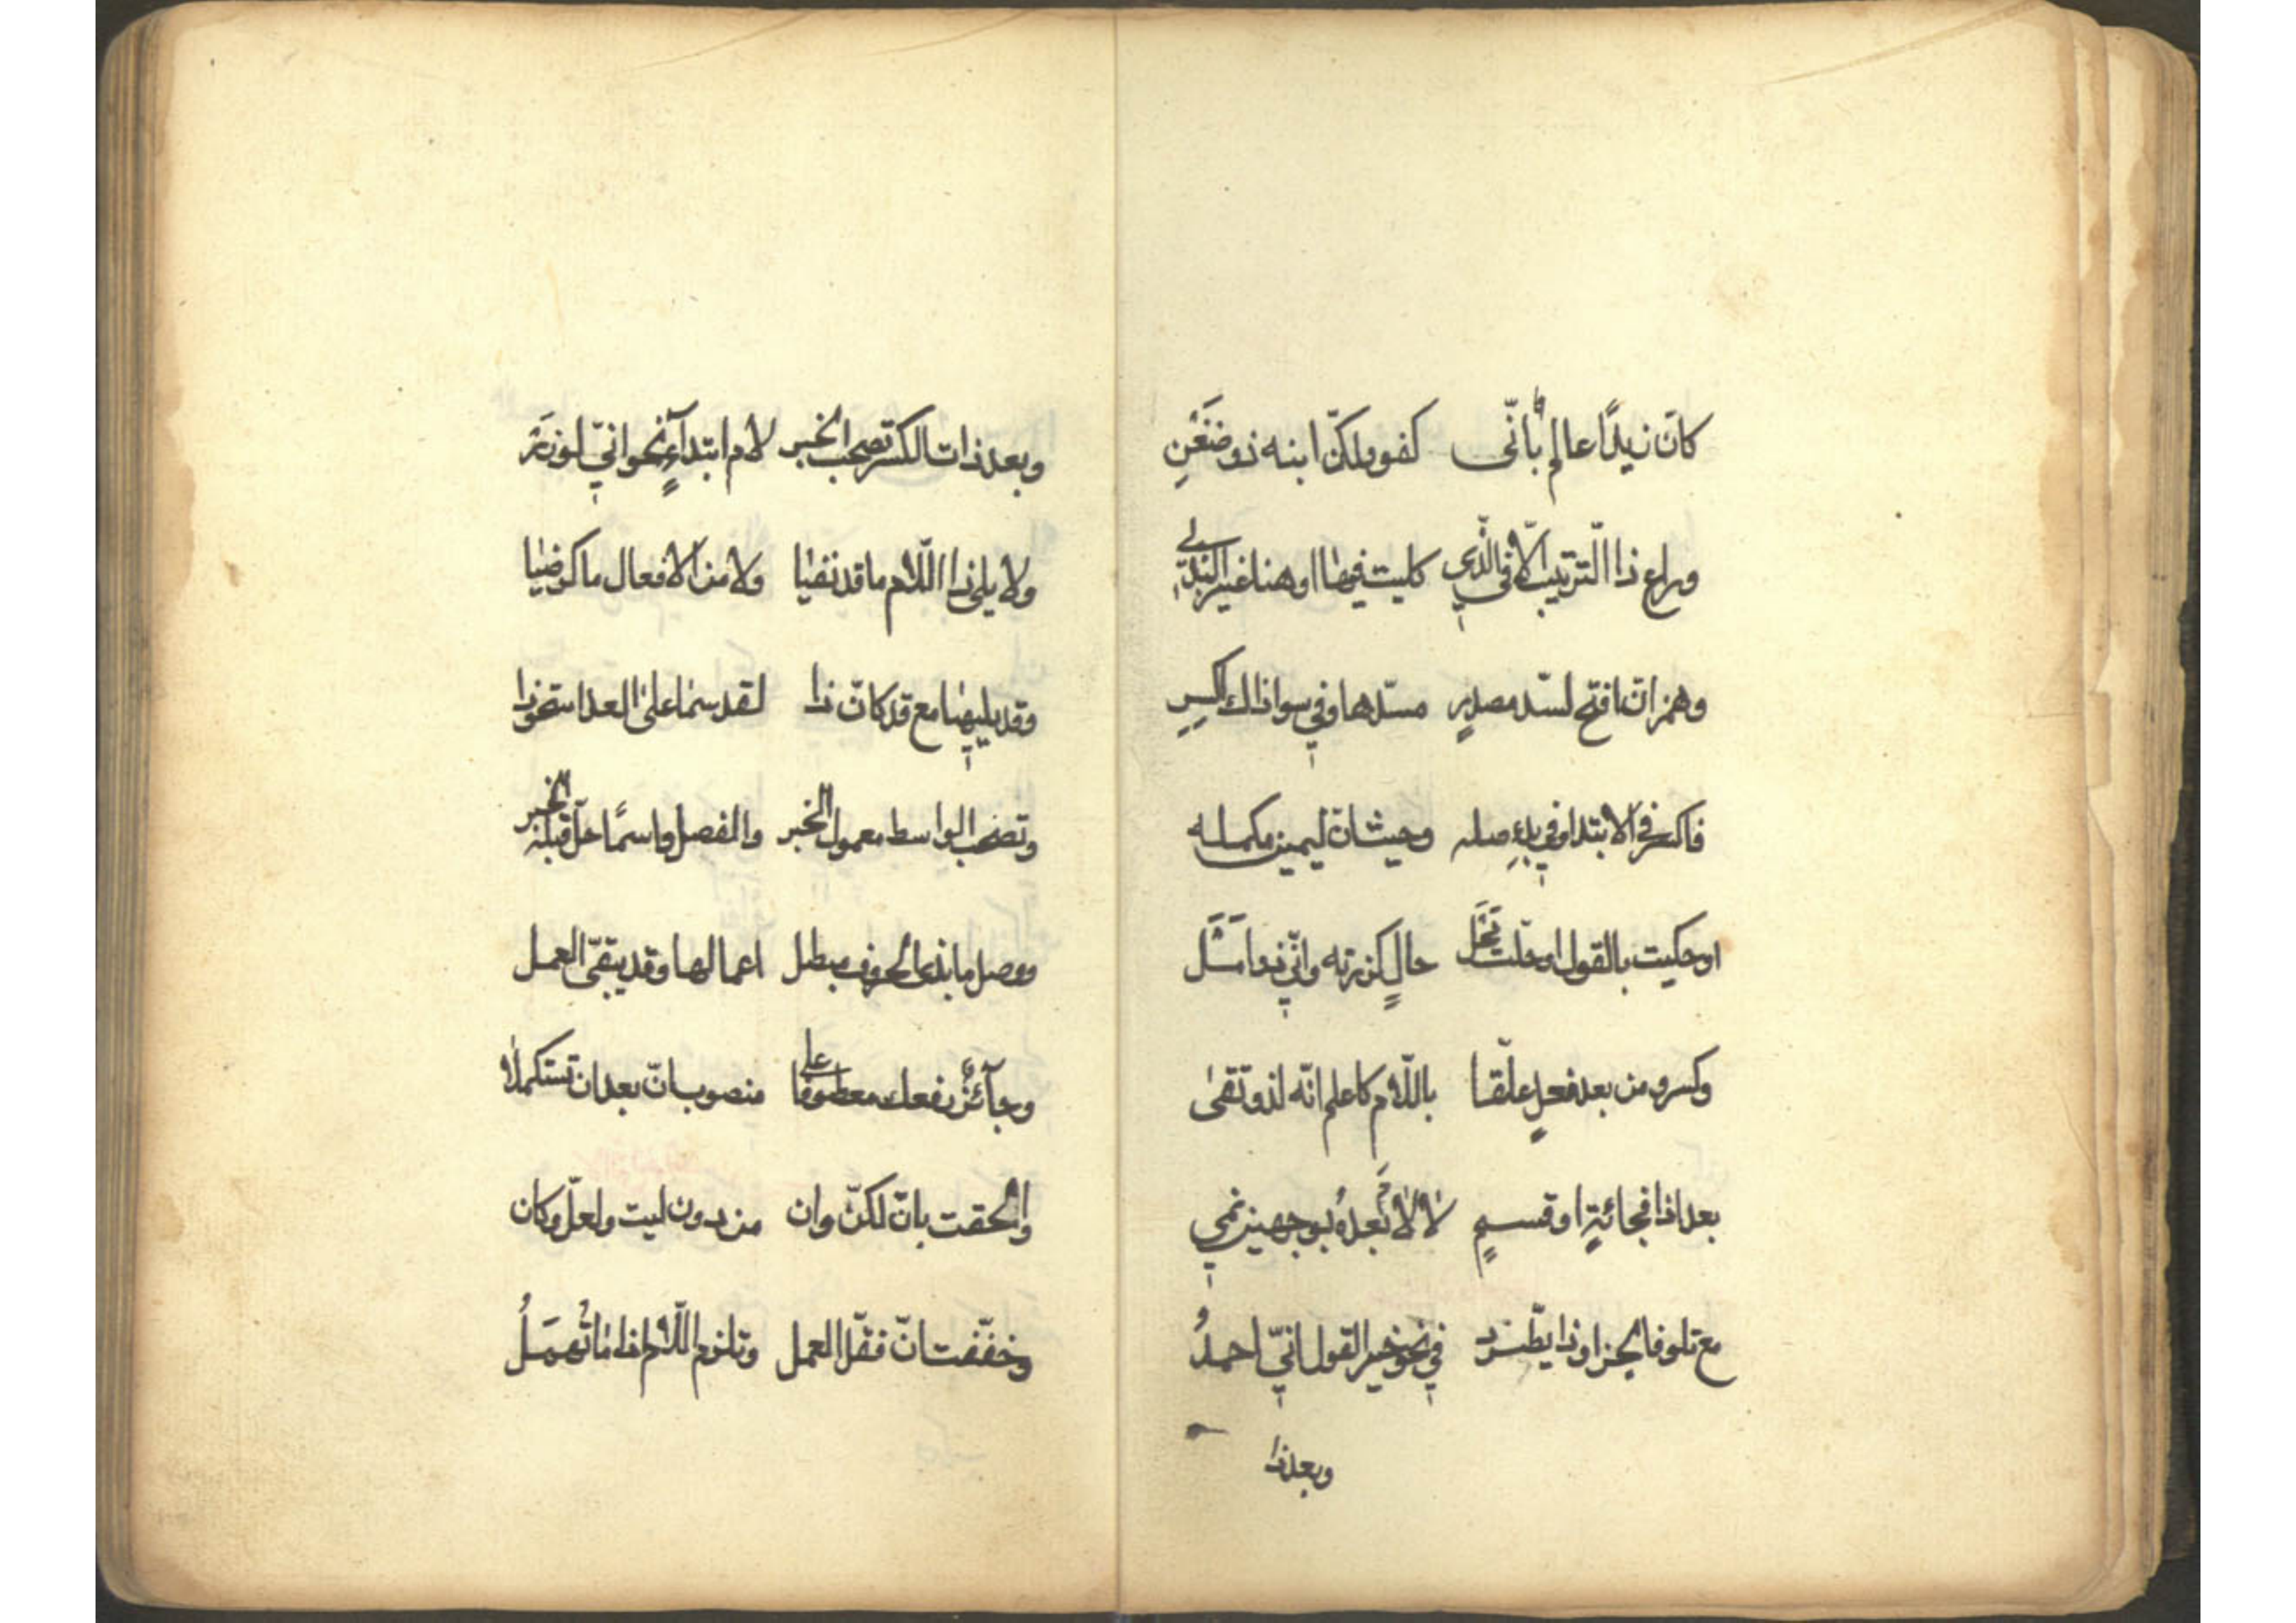 كانّ زيدًا عالم بأنّى كفو ولكنّ ابنه ذو ضغن
وراع ذا الترتيب الّا فى الّذي كليت فيها او هنا غير البذي
وهمز انّ افتح لسدّ مصدرٍ مسدّها وفي سوا ذاك اكسر
فاكسر في الابتدا وفي بدء صله وحيث انّ ليمين مكمله
او حكيت بالقول او حلّت محَل حالٍ كزرته وانّي ذو امَل
وكسرو من بعد فعلٍ علّقا باللّام كاعلم انّه لذو تقى
بعد اذا فجائةٍ او قسمٍ لا لام بعدهُ بوجهين نمي
مع تلو فا الجزا وذا يطّرد في نحو خير القول انّي احمدُ
وبعد ذا
وبعد ذات الكسر تصحب الخبر لام ابتدآءٍ نحو انّي لوزَر
ولا يلي ذا اللّام ما قد نفيا ولا من الافعال ما كرضيا
وقد يليها مع قد كانّ ذا لقد سما على العدا مستحوذا
وتصحب الواسط معمول الخبر والفصل واسمًا حلّ قبله الخبر
ووصل ما بذي الحروف مبطل اعمالها وقد يبقّى العمل
وجآئزٌ رفعك معطوفا على منصوب انّ بعد ان تستكملا
والحقت بانّ لكنّ وان من دون ليت ولعلّ وكان
وخفّفت انّ فقلّ العمل وتلزم اللّام اذا ما تُهمَلُ